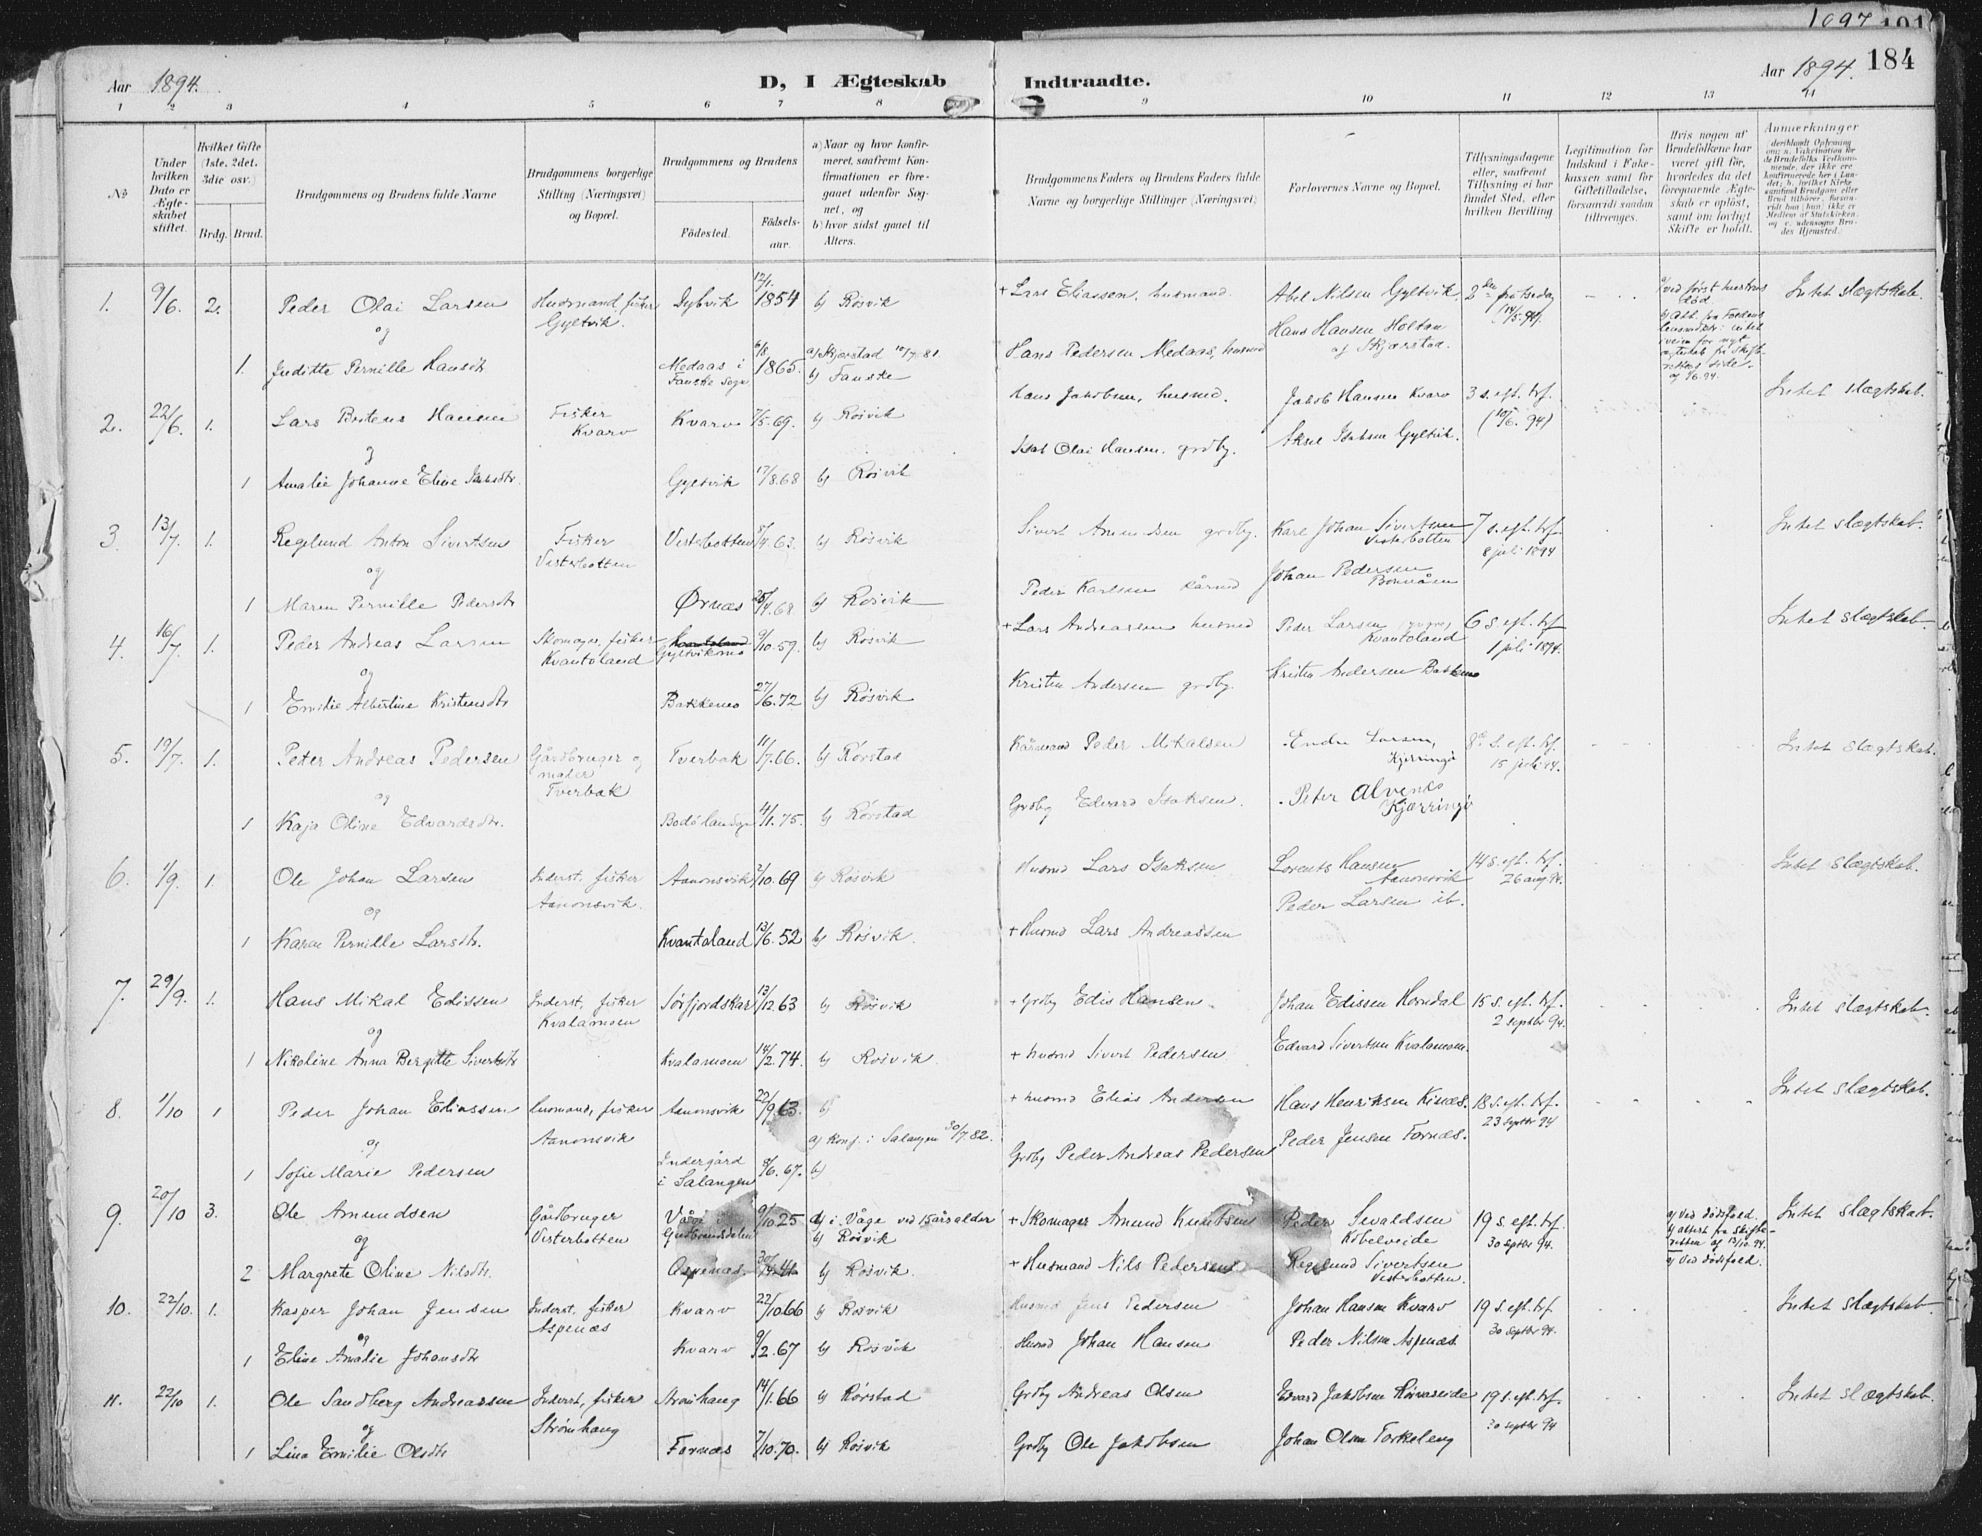 1097 101
Aar 1894. D, I Ægteskab Indtraadte. Aar 1894. 184
1 2 3 4 5 6 7 8 9 10 11 12 13 14
No
Under hvilken Dato er Ægteskabet stiftet.
Hvilket Gifte (1ste, 2det, 3die osv.)
Brdg. Brud.
Brudgommens og Brudens fulde Navne
Brudgommens borgerlige Stilling (Næringsvei) og Bopæl.
Brudgommens og Brudens
Fødested. Fødsels-aar.
a) Naar og hvor konfirmeret, saafremt Konfirmationen er foregaaet udenfor Sognet, og
b) hvor sidst gaaet til Alters.
Brudgommens Faders og Brudens Faders fulde Navne og borgerlige Stillinger (Næringsvei)
Forlovernes Navne og Bopæl.
Tillysningsdagene eller, saafremt Tillysning ei har fundet Sted, efter hvilken Bevilling
Legitimation for Indskud i Enkekassen samt for Giftetilladelse, forsaavidt saadan tiltrænges.
Hvis nogen af Brudefolkene har været gift før, hvorledes da det foregaaende Ægteskab er opløst, samt om lovligt Skifte er holdt.
Anmerkninger
1. 9/6. 2. Peder Olai Larsen Husmand, fisker Gyltvik. Dybvik 12/1. 1854 b) Rösvik + Lars Eliassen, husmand. Abel Nilsen Gyltvik. Intet slægtskab.
og Hans Hansen Holtan af Skjærstad.
1. Juditte Pernille Hansdtr Medaas i Fauske sogn 6/8 1865. a) Skjerstad 10/7 81 b) Fauske Hans Pedersen Medaas, husmd
2. 22/6. 1. Lars Hansen Fisker Kvarv Kvarv 7/5. 69. b) Rösvik Hans Jakobsen, husmd. Jakob Hansen Kvarv 3 s. eft. trf. (10/6. 94) Intet slægtskab.
og
1 Amalie Johanne Eline Gyltvik 17/8. 68 b) Rösvik Isak Olai Hansen. grdbg. Gyltvik.
3. 13/7. 1. Regelund Anton Sivertsen Fisker Visterbotten Visterbotten 8/4. 63. b) Rösvik Sivert Amundsen grdbg. Karl Johan Sivertsen Visterbotten 7 s. eft. trf. 8 juli 1894 Intet slægtskab.
og
1 Maren Pernille Pedersdtr Ørnæs 25/4. 68 b) Rösvik Peder Karlsen Johan Pedersen
4. 16/7. 1. Peder Andreas Larsen Skomager, fisker Kvantoland Gyltvikmo 9/10. 59. b) Rösvik + Lars Andreassen husmd Peder Larsen Kvantoland 6 s. eft. trf. 1 juli 1894. Intet slægtskab.
og
1 Emilie Albertine Kristensdtr Bakkemo 27/6. 72 b) Rösvik Kristen Andersen grdbg. Kristen Andersen Bakkemo
5. 19/7. 1. Peter Andreas Pedersen Gårdbruger og Tverbak Tverbak 11/7. 66. b) Rörstad Peder Mikalsen Endre Larsen, Kjerringö 8de s. eft. trf. 15 juli 94. Intet slægtskab.
og
1 Kaja Oline Edvardsdtr. Bodö landsogn 4/1. 75. b) Rörstad Grdbg Edvard Isaksen. Peter Alvenes Kjærringö
6. 1/9. 1. Ole Johan Larsen Inderst, fisker Aanonsvik. Aanonsvik 2/10. 69 b) Rösvik Husmd Lars Isaksen Lorents Hansen Aanonsvik 14 s. eft. trf. 26 aug. 94. Intet slægtskab.
og Peder Larsen ib.
1 Karen Pernille Larsdtr. Kvantoland 13/6. 52 b) Rösvik. + Husmd Lars Andreassen
7. 29/9. 1. Hans Mikal Edissen Inderst, fisker Kvalamoen Sörfjordskar 13/12. 63 b) Rösvik + Grdbg Edis Hansen. Johan Edissen Horndal 15 s. eft. trf. 2 septbr 94. Intet slægtskab.
og
1 Nikoline Anna Bergitte Sivertsdtr Kvalamoen 14/2. 74. b) Rösvik. + husmd Sivert Pedersen Edvard Sivertsen Kvalamoen.
8. 1/10 1 Peder Johan Eliassen husmand, fisker Aanonsvik Aanonsvik 22/9. 63. b) + husmd Elias Andersen Hans Henriksen Kinæs. 18 s. eft. trf. 23 septbr 94 Intet slægtskab.
og
1 Sofie Marie Pedersen Indergård i Salangen 8/6. 67. a) konf. i Salangen 30/7. 82. b) Grdbg Peder Andreas Pedersen Peder Jensen Fornæs.
9. 20/10 3. Ole Amundsen Gårdbruger Visterbotten Våge i Gudbrandsdalen 9/10 25 a) i Våge ved 15 års alder b) Rösvik + Skomager Amund Knutsen Peder Sevaldsen Kobelveide 19 s. eft. trf. 30 septbr 94. a) ved dödsfald. b) attest fra skifteretten af 13/10. 94. a) ved dödsfald. Intet slægtskab.
og
2 Margrete Oline Nilsdtr. Aspenæs. b) Rösvik. + Husmand Nils Pedersen Regelund Sivertsen Visterbotten.
10. 22/10. 1. Kasper Johan Jensen Inderst, fisker Aspenæs Kvarv 22/10 66 b) Rösvik Husmd Jens Pedersen Johan Hansen Kvarv 19 s. eft. trf. 30 septbr 94. Intet slægtskab.
og
1 Eline Amalie Johansdtr Kvarv 9/2. 67 b) Rösvik Husmd Johan Hansen Peder Nilsen Aspenæs
11. 22/10 1. Ole Sandberg Andreassen Inderst, fisker Strömhaug Strömhaug 14/1. 66 b) Rörstad Grdbg Andreas Olsen Edvard Jakobsen 19 s. eft. trf. 30 septbr 94 Intet slægtskab.
og
1 Lina Emilie Olsdtr Fornæs 7/10. 70. b) Rösvik Grdbg Ole Jakobsen Johan Olsen Torkeleng